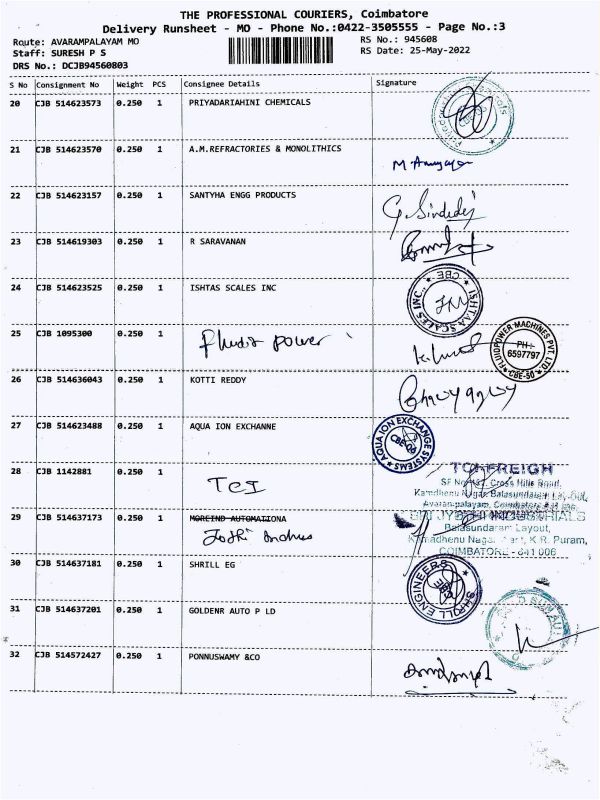 THE PROFESSIONAL COURIERS, Coimbatore
Delivery Runsheet - MO - Phone No.:0422-3505555 - Page No.:3
Route: AVARAMPALAYAM MO RS No.: 945608
Staff: SURESH P S RS Date: 25-May-2022
DRS No.: DCJB94560803
S No Consignment No Weight PCS Consignee Details Signature
20 CJB 514623573 0.250 1 PRIYADARIAHINI CHEMICALS
21 CJB 514623570 0.250 1 A.M.REFRACTORIES & MONOLITHICS
22 CJB 514623157 0.250 1 SANTYHA ENGG PRODUCTS
23 CJB 514619303 0.250 1 R SARAVANAN
24 CJB 514623525 0.250 1 ISHTAS SCALES INC
ISHTAA SCALES INC., CBE
25 CJB 1095300 0.250 1 Fluid power
FLUIDPOWER MACHINES PVT. LTD. PH: 6597797 CBE-50
26 CJB 514636043 0.250 1 KOTTI REDDY
27 CJB 514623488 0.250 1 AQUA ION EXCHANNE
AQUA ION EXCHANGE SYSTEMS CBE-06
28 CJB 1142881 0.250 1 TCI
TCI FREIGH
Cross Hills Road,
Kamdhenu Nagar, Balasundaram
Avarampalayam, Coimbatore
29 CJB 514637173 0.250 1 MOREIND AUTOMATIONA
Jothi Indus
JYOTHI INDUSTRIALS
Balasundaram Layout,
Kamadhenu Nagar K.R. Puram,
COIMBATORE - 641 006
30 CJB 514637181 0.250 1 SHRILL EG
SHROLL ENGINEERS
31 CJB 514637201 0.250 1 GOLDENR AUTO P LD
32 CJB 514572427 0.250 1 PONNUSWAMY &CO